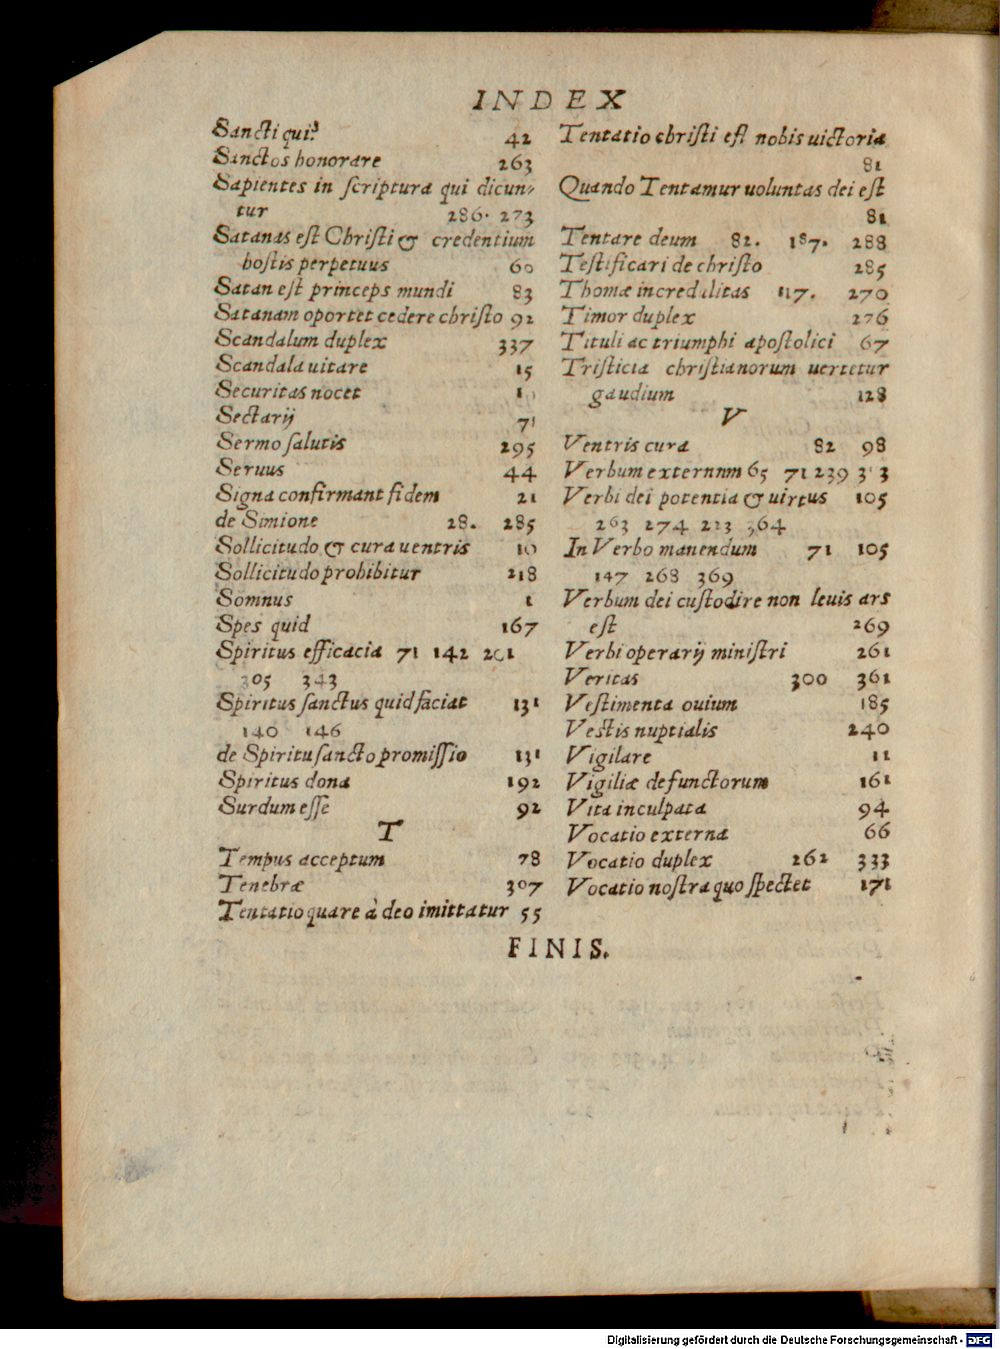 INDEX
Sancti qui? 42
Sanctos honorare 263
Sapientes in scriptura qui dicun-
tur 286. 273
Satanas est Christi & credentium
hostis perpetuus 60
Satan est princeps mundi 83
Satanam oportet cedere christo 92
Scandalum duplex 337
Scandala uitare 15
Securitas nocet
Sectarij 71
Sermo salutis 295
Seruus 44
Signa confirmant fidem 21
de Simione 28. 285
Sollicitudo & cura uentris 10
Sollicitudo prohibitur 218
Somnus 1
Spes quid 167
Spiritus efficacia 71 142 201
305 343
Spiritus sanctus quid faciat 131
140 146
de Spiritu sancto promissio 131
Spiritus dona 192
Surdum esse 92
T
Tempus acceptum 78
Tenebræ 307
Tentatio quare à deo imittatur 55
Tentatio christi est nobis uictoria
81
Quando Tentamur uoluntas dei est
81
Tentare deum 82. 187. 288
Testificari de christo 285
Thomæ incredulitas 117. 270
Timor duplex 276
Tituli ac triumphi apostolici 67
Tristicia christianorum uertetur
gaudium 128
V
Ventris cura 82 98
Verbum externnm 65 71 239
Verbi dei potentia & uirtus 105
263 274 223 364
In Verbo manendum 71 105
147 268 369
Verbum dei custodire non leuis ars
est 269
Verbi operarij ministri 261
Veritas 300 361
Vestimenta ouium 185
Vestis nuptialis 240
Vigilare 11
Vigiliæ defunctorum 161
Vita inculpata 94
Vocatio externa 66
Vocatio duplex 262 333
Vocatio nostra quo spectet 171
FINIS.
Digitalisierung gefördert durch die Deutsche Forschungsgemeinschaft - DFG